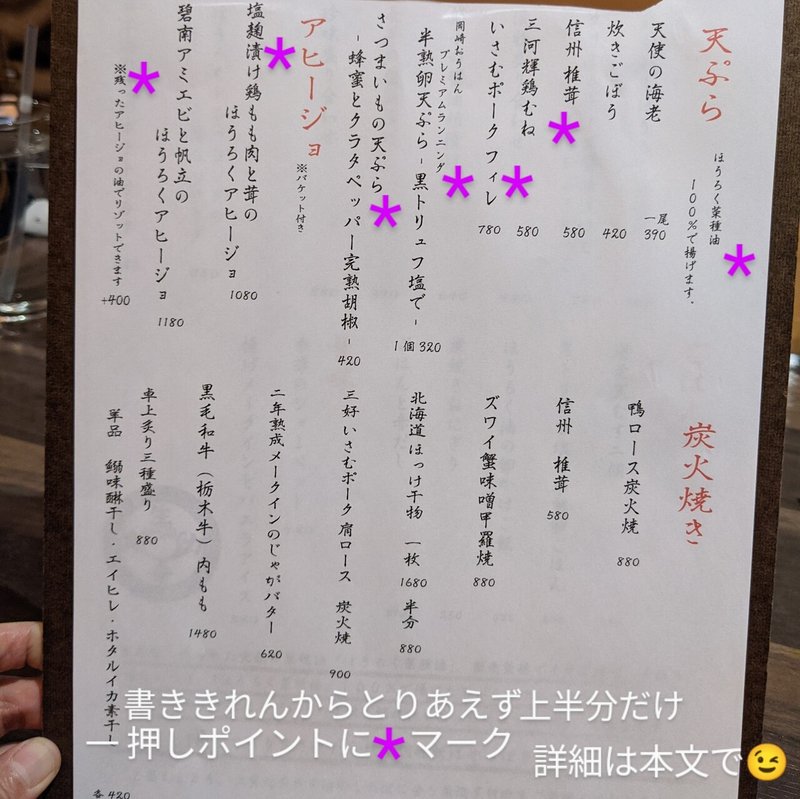 天ぷら
ほうろく菜種油
100%で揚げます.
天使の海老
一尾
390
炊きごぼう
420
信州 椎茸
580
三河輝鶏むね
580
いさむポークフィレ
780
岡崎おうはん
プレミアムランニング
半熟卵天ぷら-黒トリュフ塩で-
1個 320
さつまいもの天ぷら
-蜂蜜とクラタペッパー完熟胡椒-
420
アヒージョ
※バケット付き
塩麹漬け鶏もも肉と茸の
ほうろくアヒージョ
1080
碧南アミエビと帆立の
ほうろくアヒージョ
1180
※残ったアヒージョの油でリゾットできます
+400
炭火焼き
鴨ロース炭火焼
880
信州 椎茸
580
ズワイ蟹味噌甲羅焼
880
北海道ほっけ干物 一枚
1680
半分
880
三好いさむポーク肩ロース 炭火焼
900
二年熟成メークインのじゃがバター
620
黒毛和牛(栃木牛)内もも
1480
卓上炙り三種盛り
880
単品 鰯味醂干し・エイヒレ・ホタルイカ素干し
各 420
書ききれんからとりあえず上半分だけ
一押しポイントに*マーク
詳細は本文で😉